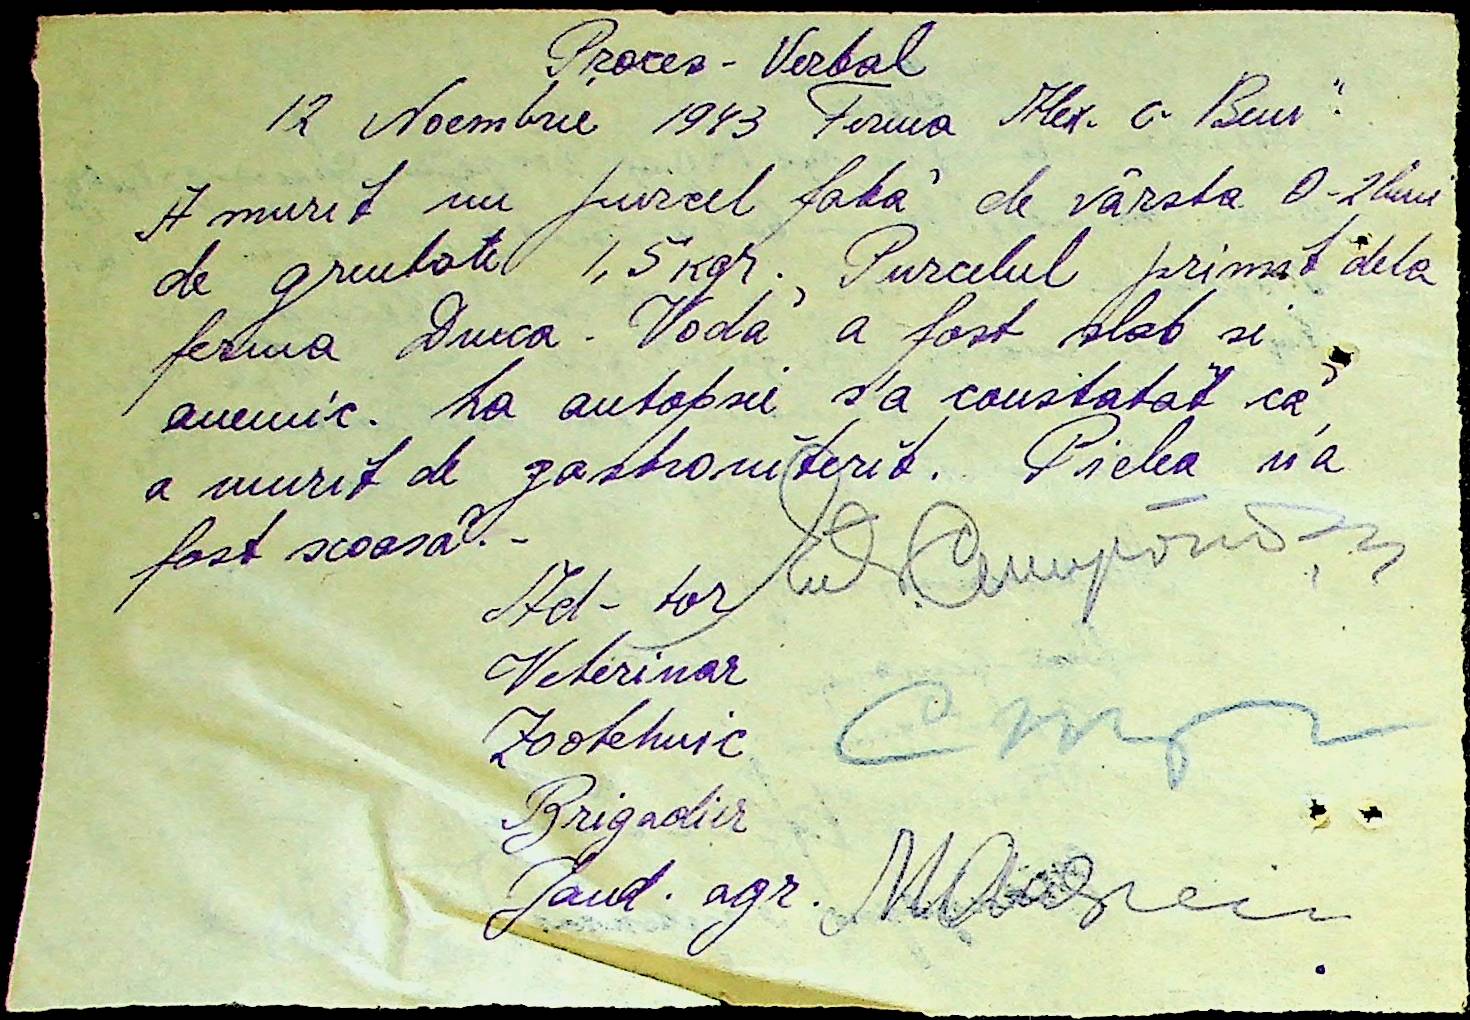 Proces - Verbal
12 Noembrie 1943 Ferma Alex. c.
A murit un purcel fată de vârsta 0-2 luni
de greutate 1,5 kgr. Purcelul primit dela
ferma Duca - Vodă a fost slab si
anemic. La autopsii s'a constatat că
a murit de gastroniterit. Pielea n'a
fost scoasă. -
Ad - tor
Veterinar
Zootehnic
Brigadier
Jand. agr.